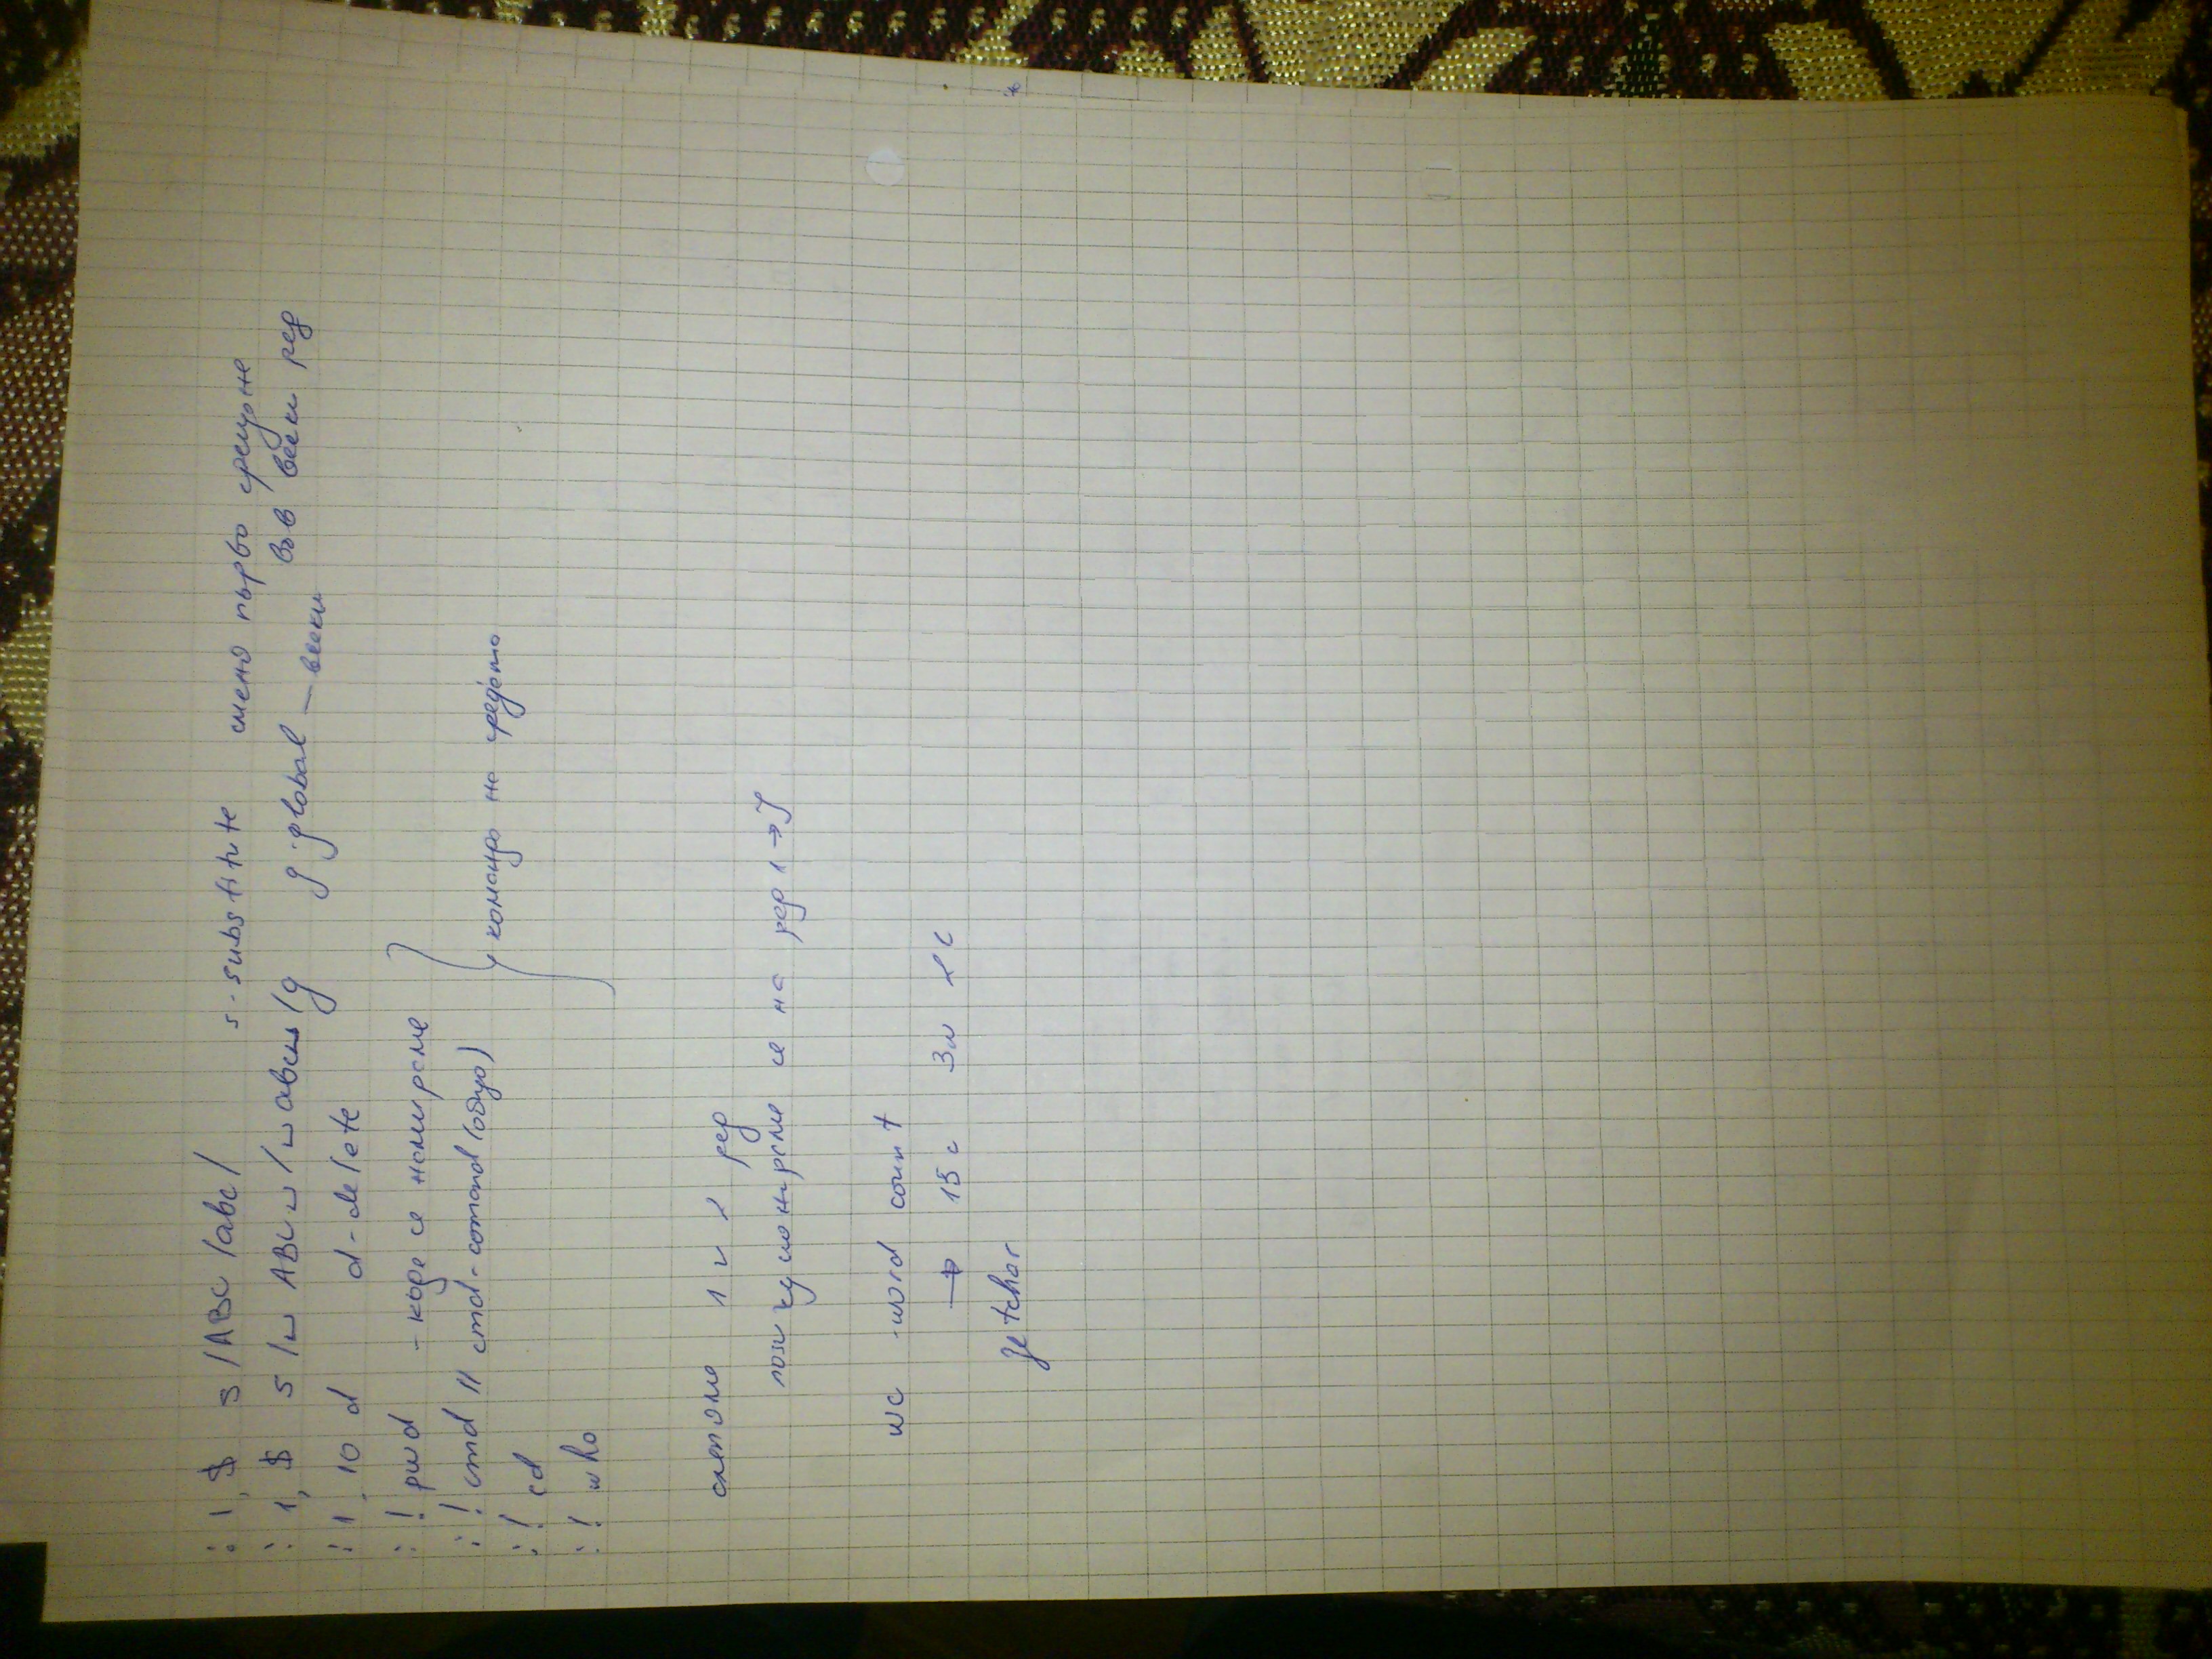 : 1, $ s /ABC /abc/ s - substitute сменя първо срещане
: 1, $ s /␣ ABC␣ ␣ /␣ abc␣ /g g - global — всеки във всеки ред
: 1, 10 d d - delete
: ! pwd - къде се намираме
: ! cmd // cmd - comand (общо) команда на средата
: ! cd
: ! who
слепяме 1 и 2 ред
позиционираме се на ред 1 → J
wc - word count
→ 15 c 3w 2c
getchar